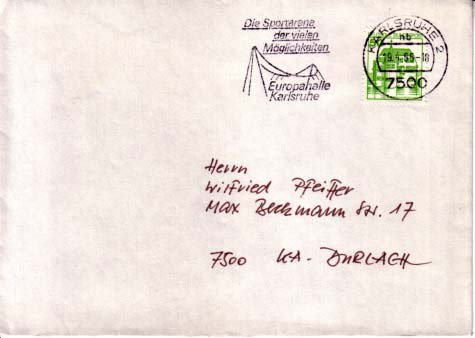 Die Sportarena
der vielen
Möglichkeiten
Europahalle
Karlsruhe
KARLSRUHE 2
hb
-18
7500
Herrn
Wilfried Pfeiffer
Max Beckmann Str. 17
7500 KA - DURLACH